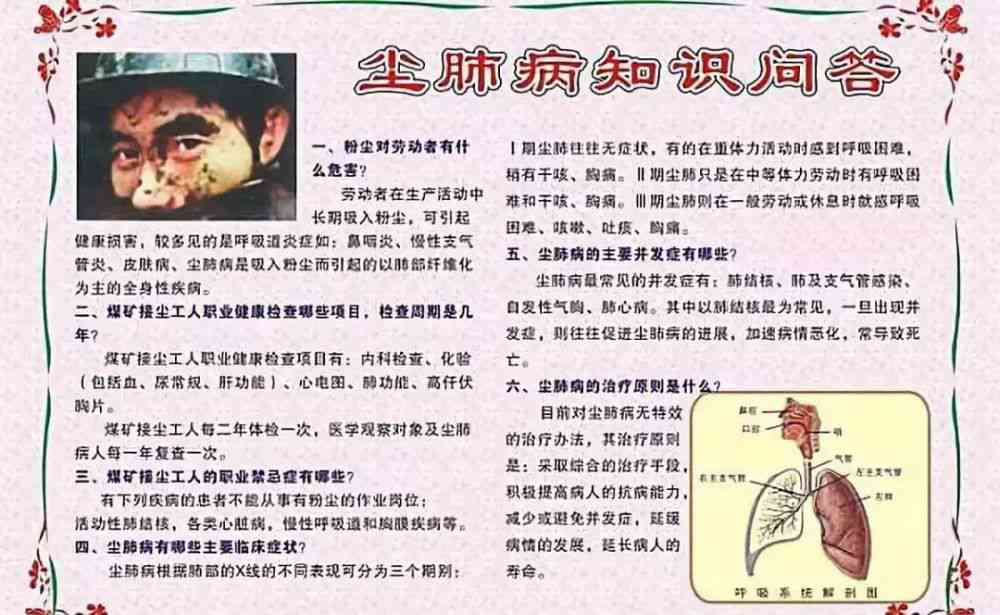 尘肺病知识问答
一、粉尘对劳动者有什
么危害？
劳动者在生产活动中
长期吸入粉尘，可引起
健康损害，较多见的是呼吸道炎症如：鼻咽炎、慢性支气
管炎、皮肤病、尘肺病是吸入粉尘而引起的以肺部纤维化
为主的全身性疾病。
二、煤矿接尘工人职业健康检查哪些项目，检查周期是几
年？
煤矿接尘工人职业健康检查项目有：内科检查、化验
（包括血、尿常规、肝功能）、心电图、肺功能、高仟伏
胸片。
煤矿接尘工人每二年体检一次，医学观察对象及尘肺
病人每一年复查一次。
三、煤矿接尘工人的职业禁忌症有哪些？
有下列疾病的患者不能从事有粉尘的作业岗位：
活动性肺结核，各类心脏病，慢性呼吸道和胸膜疾病等。
四、尘肺病有哪些主要临床症状？
尘肺病根据肺部的X线的不同表现可分为三个期别：
Ⅰ期尘肺往往无症状，有的在重体力活动时感到呼吸困难，
稍有干咳、胸痛。Ⅱ期尘肺只是在中等体力劳动时有呼吸困
难和干咳、胸痛。Ⅲ期尘肺则在一般劳动或休息时就感呼吸
困难、咳嗽、吐痰、胸痛。
五、尘肺病的主要并发症有哪些？
尘肺病最常见的并发症有：肺结核、肺及支气管感染、
自发性气胸、肺心病。其中以肺结核最为常见，一旦出现并
发症，则往往促进尘肺病的进展，加速病情恶化，常导致死
亡。
六、尘肺病的治疗原则是什么？
目前对尘肺病无特效
的治疗办法，其治疗原则
是：采取综合的治疗手段，
积极提高病人的抗病能力，
减少或避免并发症，延缓
病情的发展，延长病人的
寿命。
鼻腔
口腔
咽
气管
右主支气管
左主支气管
左肺
呼吸系统解剖图